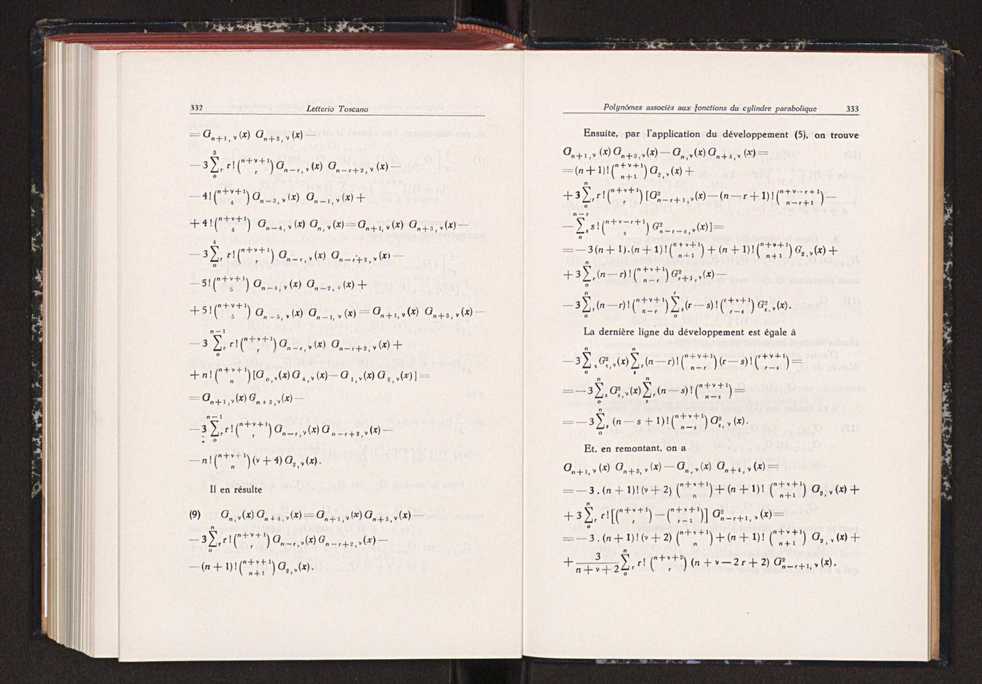 332 Letterio Toscano
= G_{n+1,ν}(x) G_{n+3,ν}(x) —
— 3 ∑_{r=0}^{3} r! \binom{n+ν+1}{r} G_{n−r,ν}(x) G_{n−r+2,ν}(x) —
— 4! \binom{n+ν+1}{4} G_{n−3,ν}(x) G_{n−1,ν}(x) +
+ 4! \binom{n+ν+1}{4} G_{n−4,ν}(x) G_{n,ν}(x) = G_{n+1,ν}(x) G_{n+3,ν}(x) —
— 3 ∑_{r=0}^{4} r! \binom{n+ν+1}{r} G_{n−r,ν}(x) G_{n−r+2,ν}(x) —
— 5! \binom{n+ν+1}{5} G_{n−4,ν}(x) G_{n−2,ν}(x) +
+ 5! \binom{n+ν+1}{5} G_{n−5,ν}(x) G_{n−1,ν}(x) = G_{n+1,ν}(x) G_{n+3,ν}(x) —
— 3 ∑_{r=0}^{n−1} r! \binom{n+ν+1}{r} G_{n−r,ν}(x) G_{n−r+2,ν}(x) +
+ n! \binom{n+ν+1}{n} [G_{0,ν}(x) G_{4,ν}(x) — G_{1,ν}(x) G_{3,ν}(x)] =
= G_{n+1,ν}(x) G_{n+3,ν}(x) —
— 3 ∑_{r=0}^{n−1} r! \binom{n+ν+1}{r} G_{n−r,ν}(x) G_{n−r+2,ν}(x) —
— n! \binom{n+ν+1}{n} (ν + 4) G_{2,ν}(x).
Il en résulte
(9) G_{n,ν}(x) G_{n+4,ν}(x) = G_{n+1,ν}(x) G_{n+3,ν}(x) —
— 3 ∑_{r=0}^{n} r! \binom{n+ν+1}{r} G_{n−r,ν}(x) G_{n−r+2,ν}(x) —
— (n + 1)! \binom{n+ν+1}{n+1} G_{2,ν}(x).
Polynômes associés aux fonctions du cylindre parabolique 333
Ensuite, par l'application du développement (5), on trouve
G_{n+1,ν}(x) G_{n+3,ν}(x) — G_{n,ν}(x) G_{n+4,ν}(x) =
= (n + 1)! \binom{n+ν+1}{n+1} G_{2,ν}(x) +
+ 3 ∑_{r=0}^{n} r! \binom{n+ν+1}{r} [G²_{n−r+1,ν}(x) — (n — r + 1)! \binom{n+ν−r+1}{n−r+1} —
— ∑_{s=0}^{n−r} s! \binom{n+ν−r+1}{s} G²_{n−r−s,ν}(x)] =
= — 3 (n + 1).(n + 1)! \binom{n+ν+1}{n+1} + (n + 1)! \binom{n+ν+1}{n+1} G_{2,ν}(x) +
+ 3 ∑_{r=0}^{n} (n — r)! \binom{n+ν+1}{n−r} G²_{r+1,ν}(x) —
— 3 ∑_{r=0}^{n} (n — r)! \binom{n+ν+1}{n−r} ∑_{s=0}^{r} (r — s)! \binom{r+ν+1}{r−s} G²_{s,ν}(x).
La dernière ligne du développement est égale à
— 3 ∑_{s=0}^{n} G²_{s,ν}(x) ∑_{r=s}^{n} (n — r)! \binom{n+ν+1}{n−r} (r — s)! \binom{r+ν+1}{r−s} =
= — 3 ∑_{s=0}^{n} G²_{s,ν}(x) ∑_{r=s}^{n} (n — s)! \binom{n+ν+1}{n−s} =
= — 3 ∑_{s=0}^{n} (n — s + 1)! \binom{n+ν+1}{n−s} G²_{s,ν}(x).
Et, en remontant, on a
G_{n+1,ν}(x) G_{n+3,ν}(x) — G_{n,ν}(x) G_{n+4,ν}(x) =
= — 3 . (n + 1)! (ν + 2) \binom{n+ν+1}{n} + (n + 1)! \binom{n+ν+1}{n+1} G_{2,ν}(x) +
+ 3 ∑_{r=0}^{n} r! [\binom{n+ν+1}{r} — \binom{n+ν+1}{r−1}] G²_{n−r+1,ν}(x) =
= — 3 . (n + 1)! (ν + 2) \binom{n+ν+1}{n} + (n + 1)! \binom{n+ν+1}{n+1} G_{2,ν}(x) +
+ \frac{3}{n + ν + 2} ∑_{r=0}^{n} r! \binom{n+ν+2}{r} (n + ν — 2r + 2) G²_{n−r+1,ν}(x).